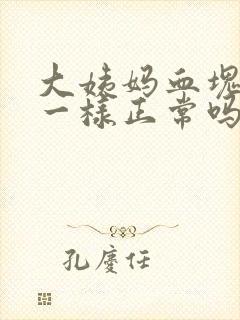 大姨妈血块
一样正常吗
孔庆任